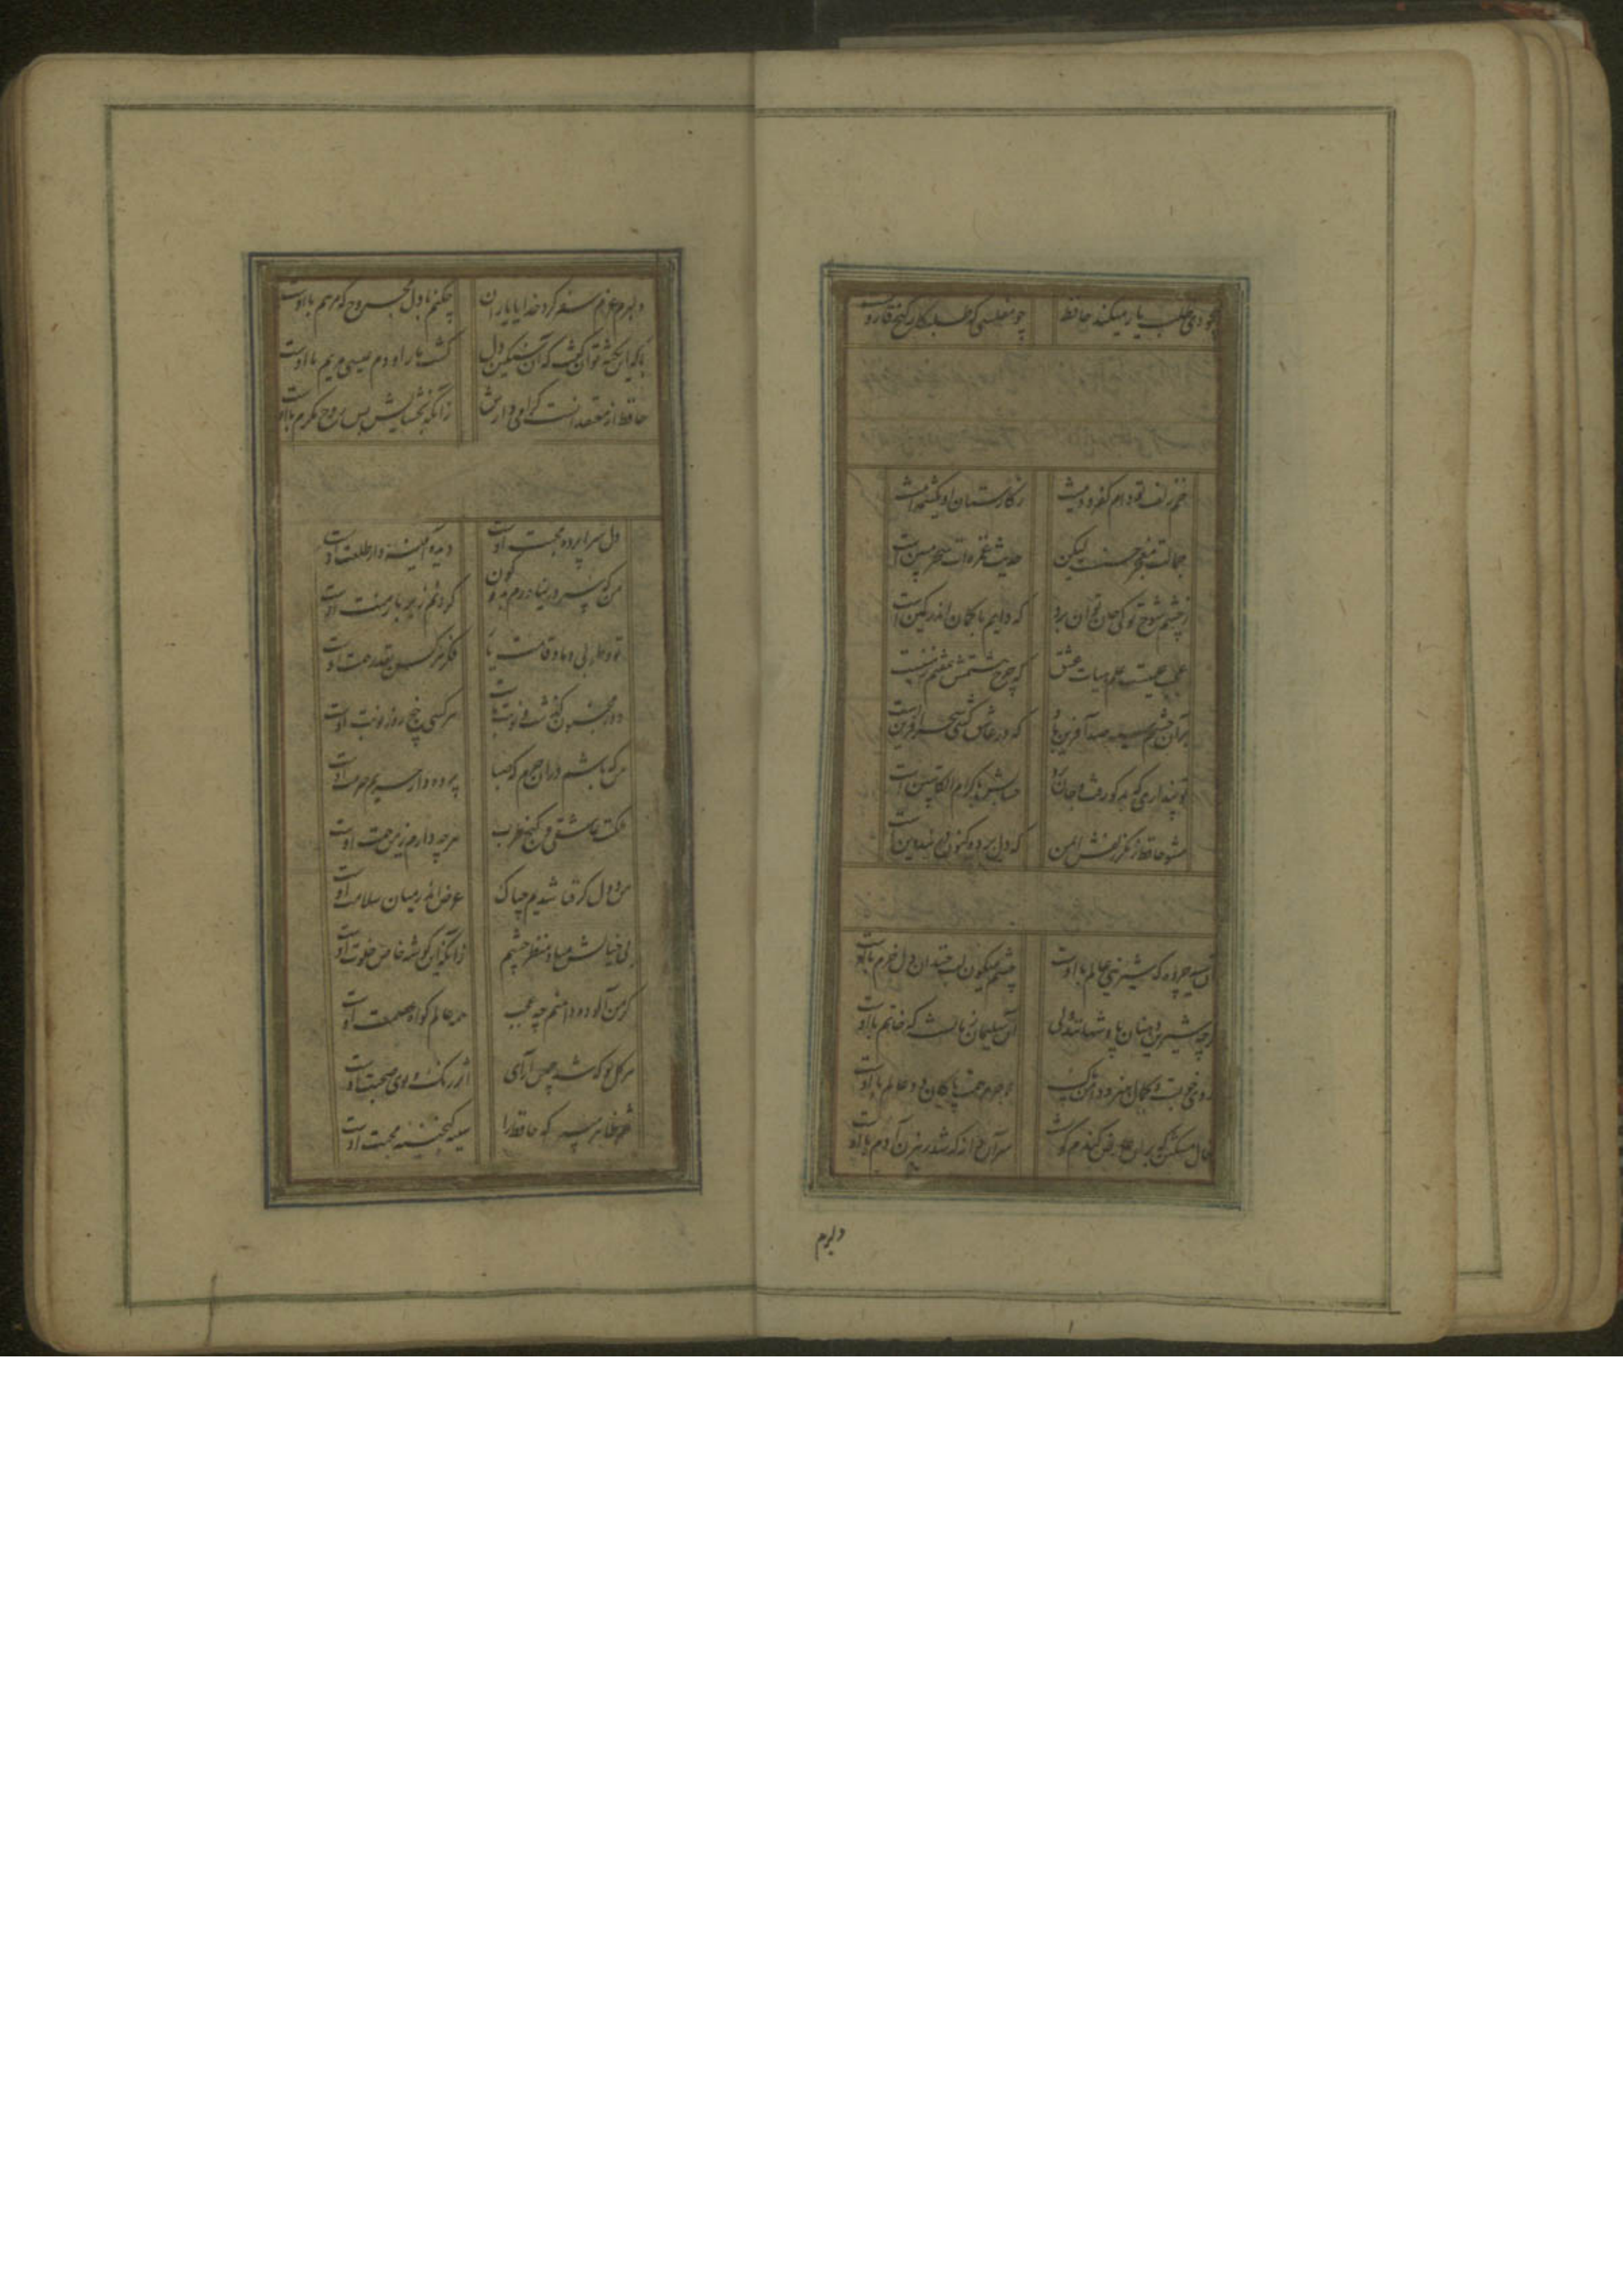 ز بیخودی طلب یار میکند حافظ چو مفلسی که طلبکار گنج قارونست
خم زلف تو دام کفر و دینست ز کارستان او یک شمه اینست
جمالت معجز حسنست لیکن حدیث غمزه‌ات سحر مبین است
ز چشم شوخ تو کی جان توان برد که دایم با کمان اندر کمین است
عجب علمیست علم هیات عشق که چرخ هشتمش هفتم زمینست
بر آن چشم سیه صد آفرین باد که در عاشق کشی سحر آفرین است
تو پنداری که بدگو رفت و جان برد حسابش با کرام الکاتبین است
مشو حافظ ز کید زلفش ایمن که دل برد و کنون در بند دین است
آن سیه چرده که شیرینی عالم با اوست چشم میگون لب خندان دل خرم با اوست
گرچه شیرین دهنان پادشهانند ولی آن سلیمان زمانست که خاتم با اوست
روی خوبست و کمال هنر و دامن پاک لاجرم همت پاکان دو عالم با اوست
خال مشکین که بران عارض گندم گونست سر آن دانه که شد رهزن آدم با اوست
دلبرم
دلبرم عزم سفر کرد خدایا یاران چکنم با دل مجروح که مرهم با اوست
با که این نکته توان گفت که آن سنگین دل کشت ما را و دم عیسی مریم با اوست
حافظ از معتقدانست گرامی دارش زانکه بخشایش بس روح مکرم با اوست
دل سراپرده محبت اوست دیده آئینه دار طلعت اوست
من که سر در نیاورم به دو کون گردنم زیر بار منت اوست
تو و طوبی و ما و قامت یار فکر هر کس بقدر همت اوست
دور مجنون گذشت و نوبت ماست هر کسی پنج روز نوبت اوست
من که باشم دران حرم که صبا پرده دار حریم حرمت اوست
ملکت عاشقی و گنج طرب هر چه دارم ز یمن همت اوست
من و دل گر فنا شدیم چه باک غرض اندر میان سلامت اوست
بی خیالش مباد منظر چشم زانکه این گوشه خاص خلوت اوست
گر من آلوده دامنم چه عجب همه عالم گواه عصمت اوست
هر گل نو که شد چمن آرای اثر رنگ و بوی صحبت اوست
فقر ظاهر مبین که حافظ را سینه گنجینه محبت اوست